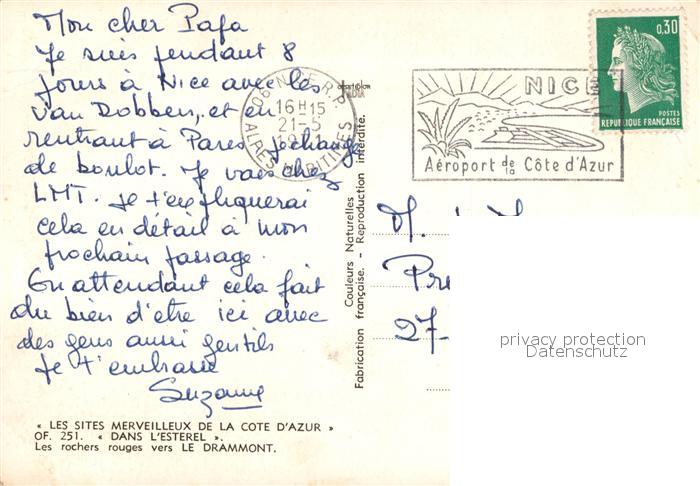 Mon cher Papa
Je suis pendant 8
jours à Nice avec les
Van Dobben, et en
rentrant à Paris je change
de boulot. Je vais chez
LMT. Je t'expliquerai
cela en détail à mon
prochain passage.
En attendant cela fait
du bien d'etre ici avec
des gens aussi gentils
Je t'embrasse
Suzanne
« LES SITES MERVEILLEUX DE LA COTE D'AZUR »
OF. 251. « DANS L'ESTEREL ».
Les rochers rouges vers LE DRAMMONT.
Couleurs Naturelles
Fabrication française. - Reproduction interdite.
NICE R.P.
16H15
21-5
ALPES MARITIMES
NICE
Aéroport de la Côte d'Azur
0,30
POSTES
REPUBLIQUE FRANÇAISE
M.
27-
privacy protection
Datenschutz